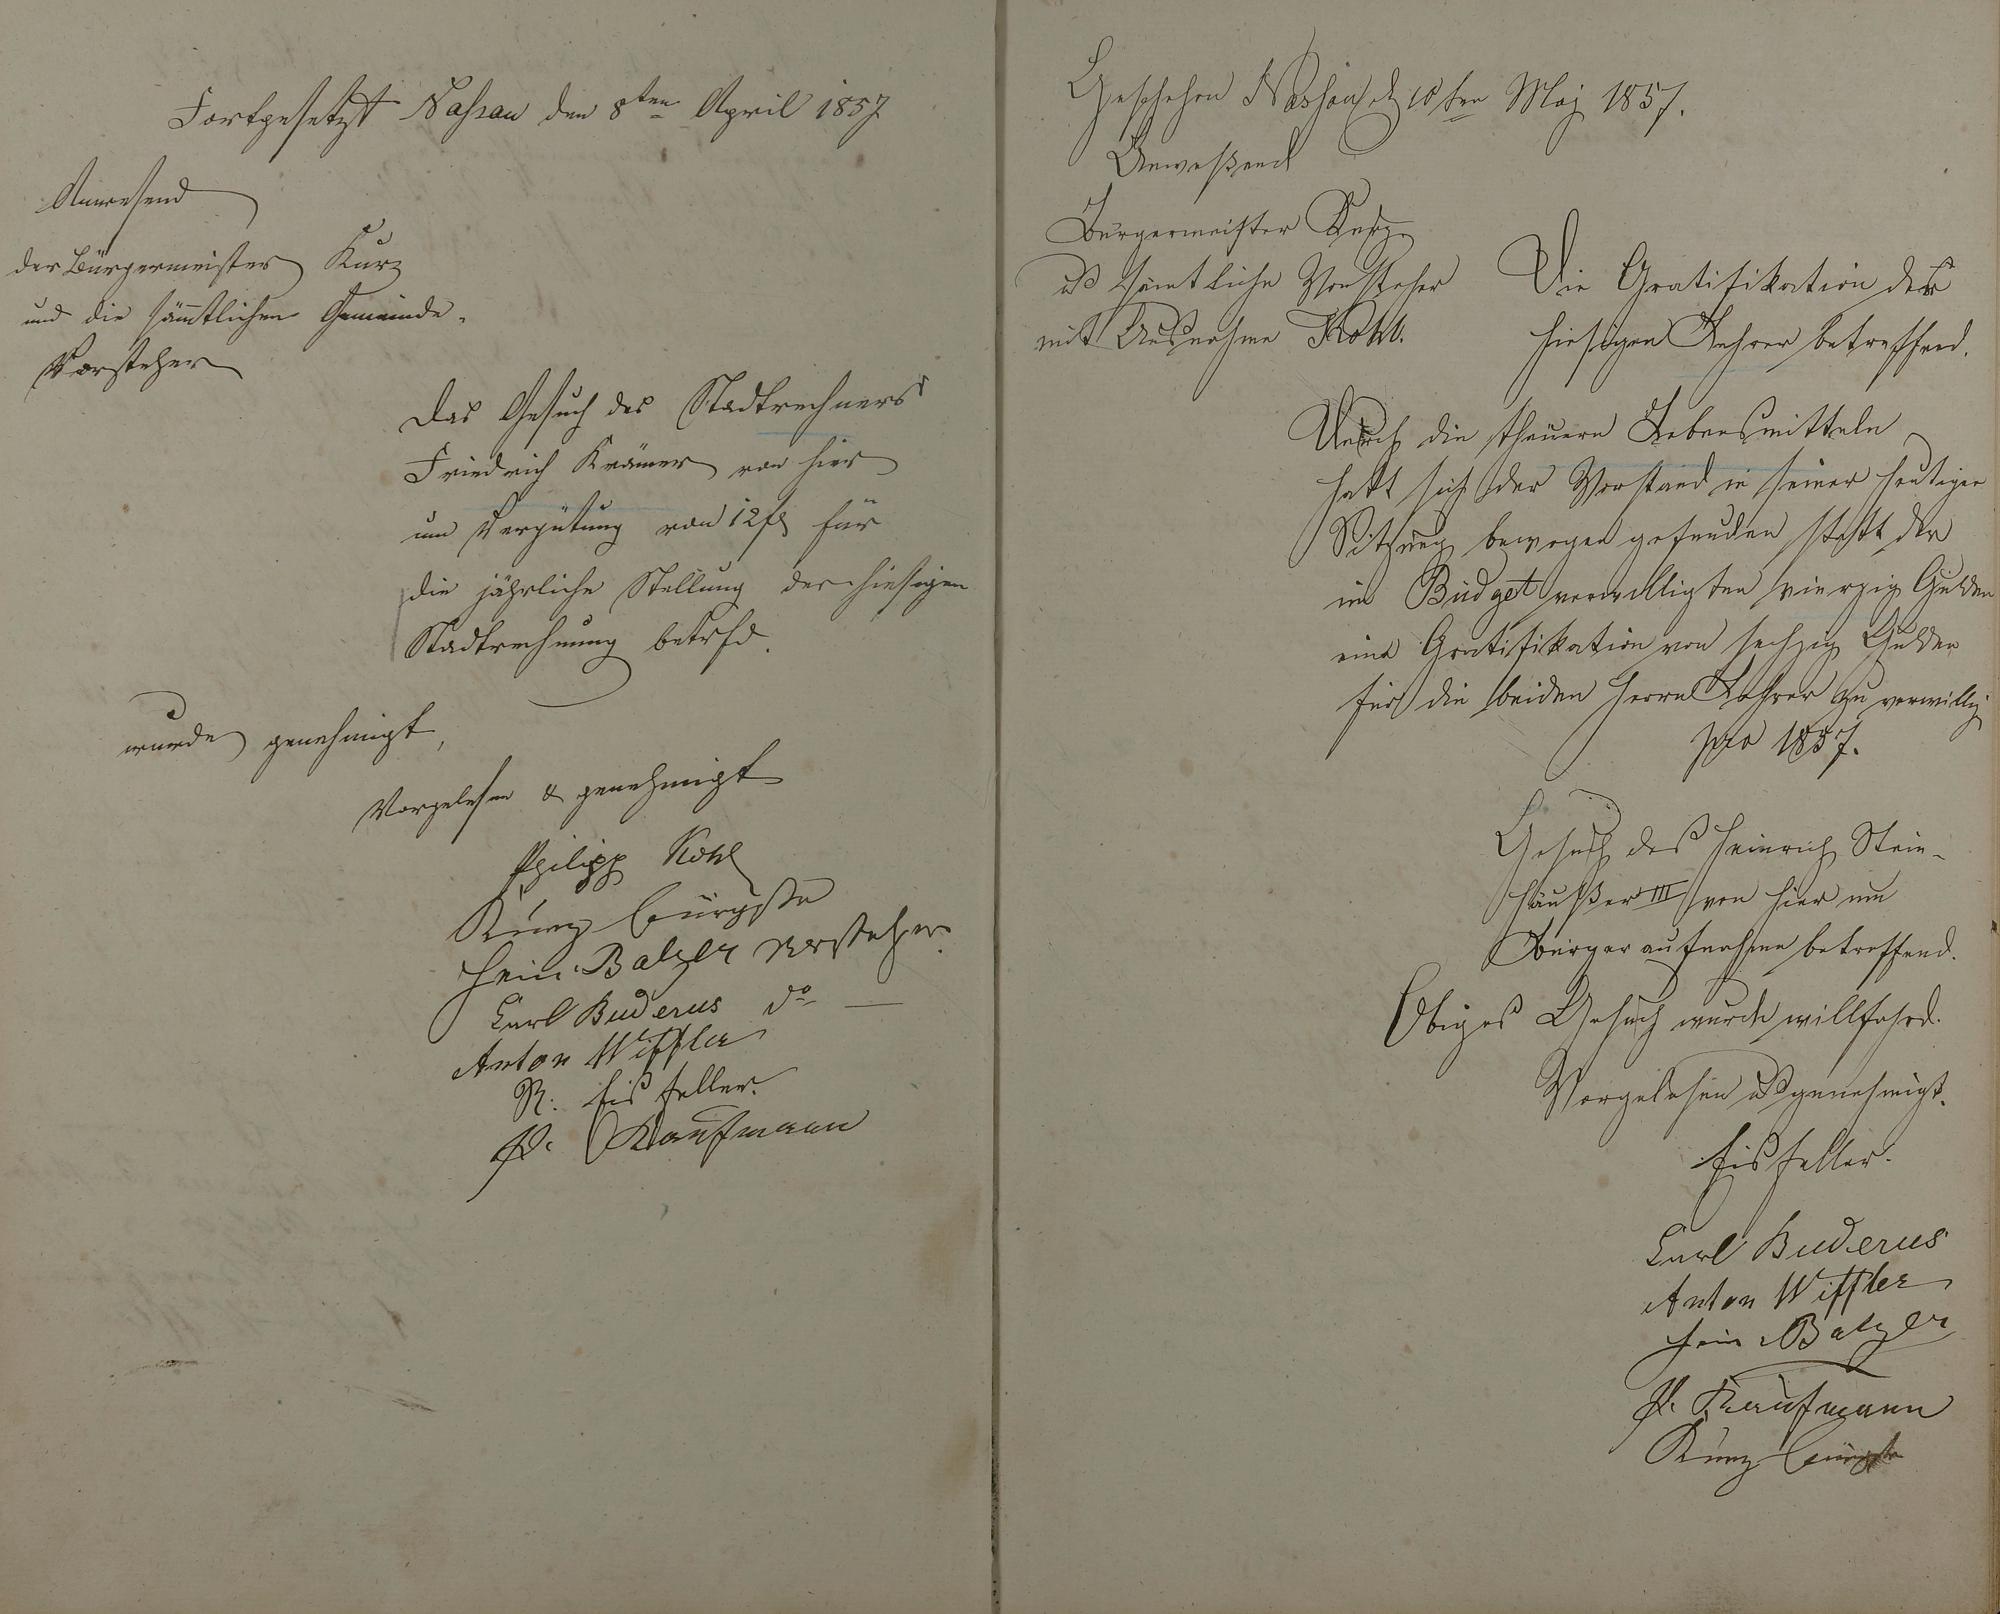 Fortgesetzt Nassau den 8ten April 1857
Anwesend
der Bürgermeister Kurz
und die sämtlichen Gemeinde-
Vorsteher
Das Gesuch des Stadtrechners
Friedrich Krämer von hier
um Vergütung von 12 fl für
die jährliche Stellung der hiesigen
Stadtrechnung betrfd.
wurde genehmigt,
Vorgelesen & genehmigt
Philipp Kohl
Kurz Bürgstr
Hein. Balzer Vorsteher
Carl Buderus do
Anton Wiffler
R. Eisfeller.
P. Kaufmann
Geschehen Nassau d 10ten Maj 1857.
Anweßend
Bürgermeister Kurz
u sämtliche Vorsteher
mit Ausnahme Kohl.
Die Gratifikation der
hiesigen Lehrer betreffend.
Durch die theuern Lebensmitteln
hatt sich der Vorstand in seiner heutigen
Sitzung bewogen gefunden statt der
im Büdget verwilligten vierzig Gulden
eine Gratifikation von sechzig Gulden
für die beiden Herrn Lehrer zu verwillig
pro 1857.
Gesuch des Heinrich Stein-
häußer III von hier um
Bürgeraufnahme betreffend.
Obiges Gesuch wurde willfahrd.
Vorgelesen u genehmigt.
Eisfeller.
Carl Buderus
Anton Wiffler
Hein Balzer
P. Kaufmann
Kurz Bürgstr